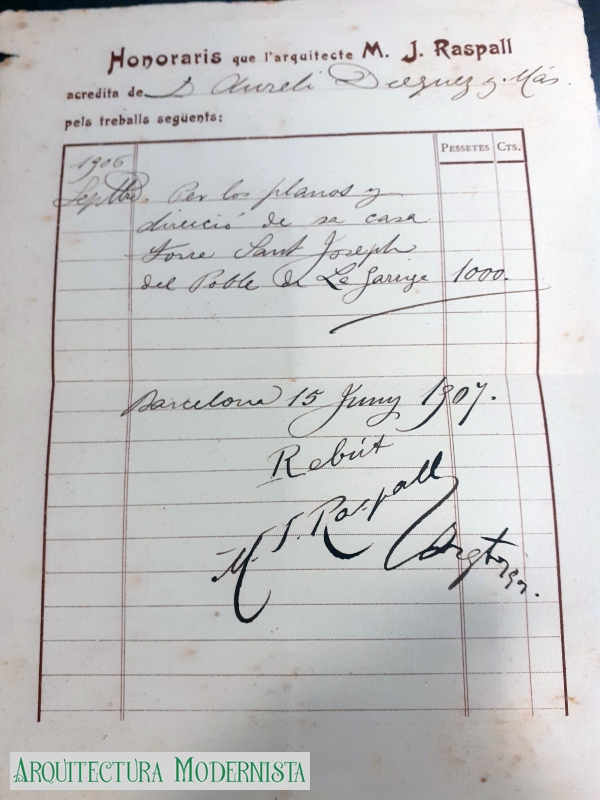 Honoraris que l'arquitecte M. J. Raspall
acredita de D Aureli Dieguez y Más.
pels treballs següents:
PESSETES CTS.
1906
Septbre. Per los planos y
direició de sa casa
torre Sant Joseph
del Poble de La Garriga 1000.
Barcelona 15 Juny 1907.
Rebút
M. J. Raspall
ARQUITECTURA MODERNISTA